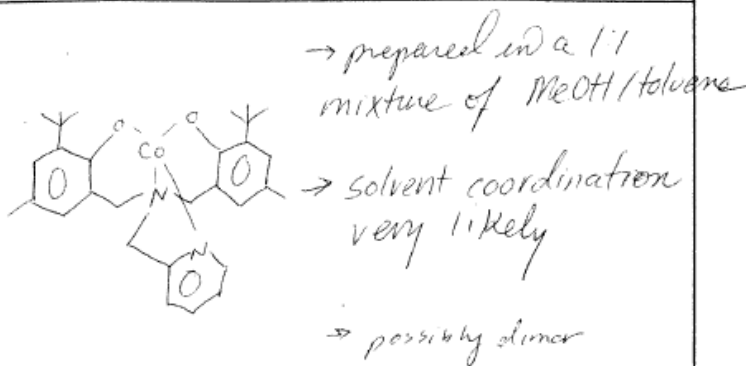 → prepared in a 1:1
mixture of MeOH/toluene
O O
Co
→ solvent coordination
very likely
N
N
→ possibly dimer